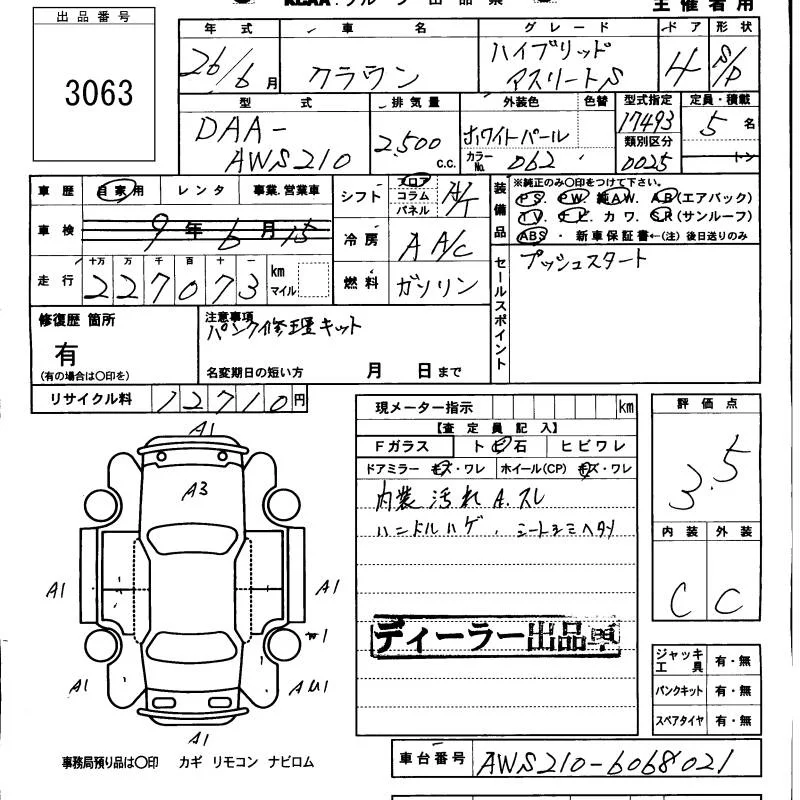 出品番号
3063
主催者用
年式 車名 グレード ドア 形状
26/6月 クラウン ハイブリッド アスリートS 4 S/D
型式 排気量 外装色 色替 型式指定 定員・積載
DAA-AWS210 2,500c.c. ホワイトパール 17493 5名
カラーNo. 062 類別区分 0025 トン
車歴 自家用 レンタ 事業.営業車
車検 9年6月15
走行 十万 万 千 百 十 一 km マイル
227073
シフト フロア コラム パネル A/T
冷房 A A/C
燃料 ガソリン
装備品 ※純正のみ〇印をつけて下さい。
PS. PW. 純AW. AB(エアバック)
TV. ナビ. カワ. SR(サンルーフ)
ABS ・ 新車保証書←(注) 後日送りのみ
セールスポイント プッシュスタート
修復歴 箇所
有
(有の場合は〇印を)
注意事項
パンク修理キット
名変期日の短い方 月 日まで
リサイクル料 12710円
現メーター指示 km
【査定員記入】
Fガラス トビ石 ヒビワレ
ドアミラー キズ・ワレ ホイール(CP) キズ・ワレ
内装 汚れ A.スレ
ハンドルハゲ. シートシミヘタリ
ディーラー出品車
評価点
3.5
内装 外装
C C
A1
A3
A1
A1
A1
A1
ジャッキ工具 有・無
パンクキット 有・無
スペアタイヤ 有・無
事務局預り品は〇印 カギ リモコン ナビロム
車台番号 AWS210-6068021